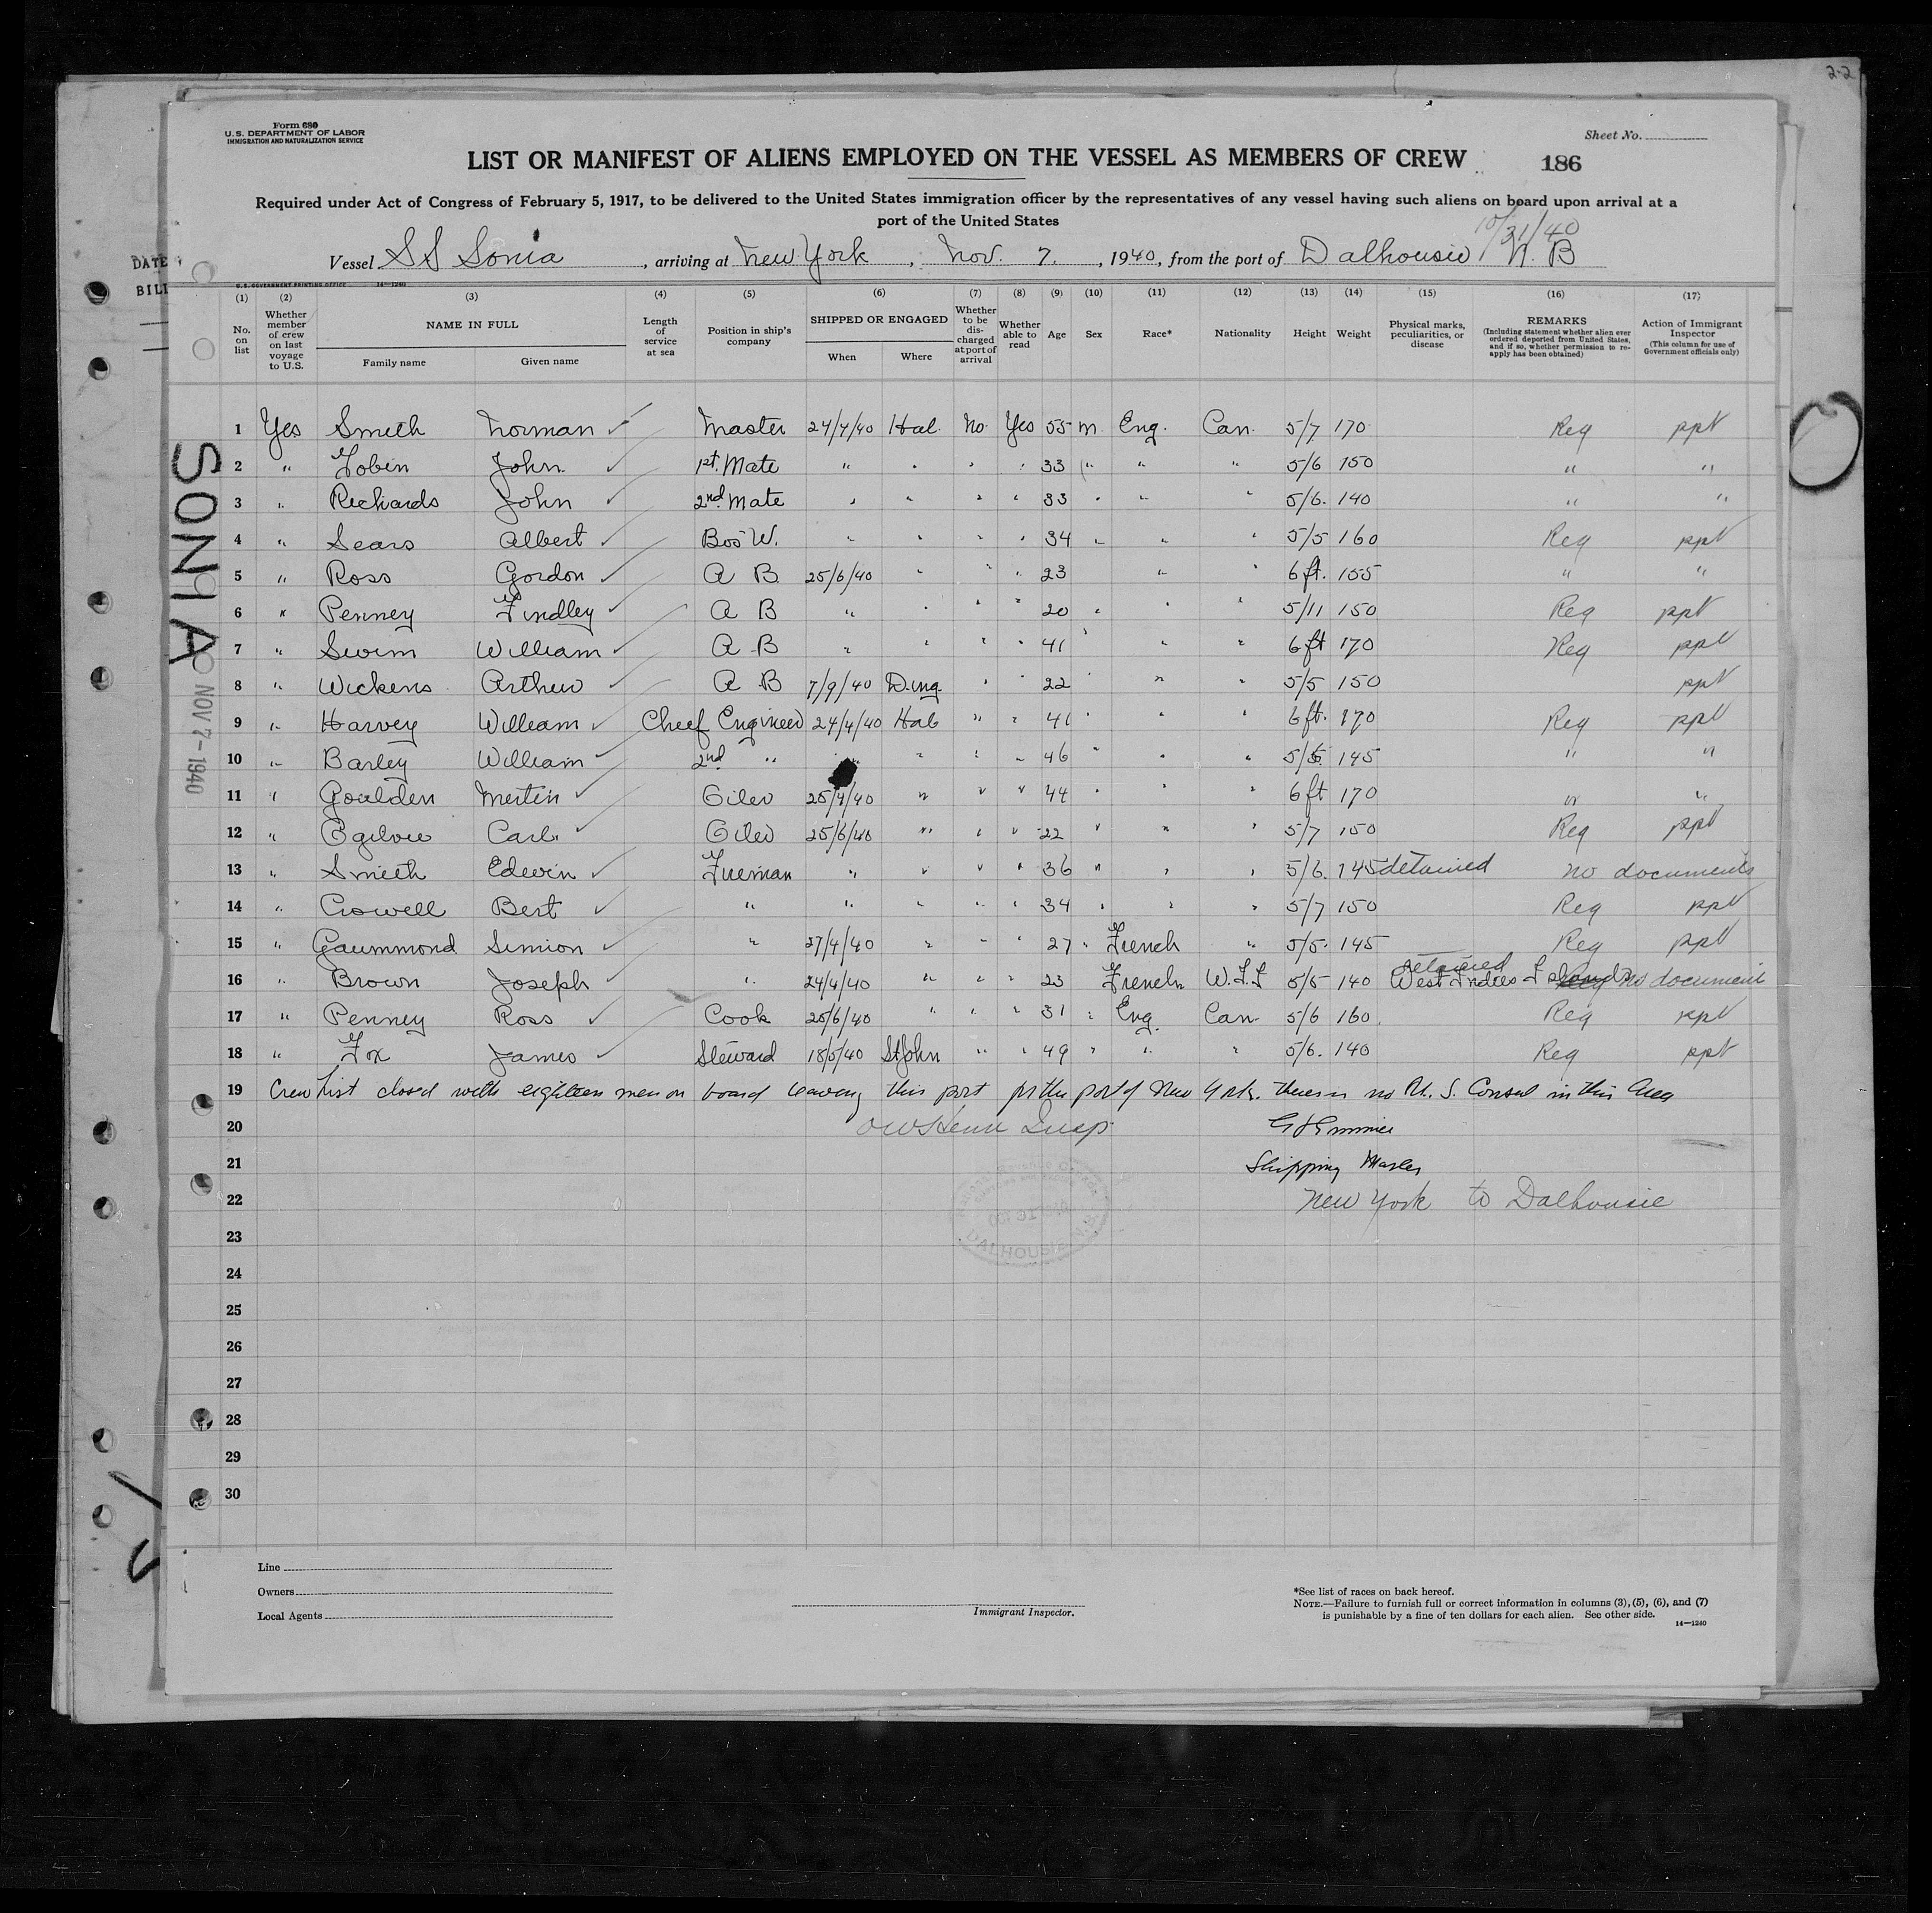 2-2
Form 680
U.S. DEPARTMENT OF LABOR
IMMIGRATION AND NATURALIZATION SERVICE
Sheet No.
LIST OR MANIFEST OF ALIENS EMPLOYED ON THE VESSEL AS MEMBERS OF CREW
186
Required under Act of Congress of February 5, 1917, to be delivered to the United States immigration officer by the representatives of any vessel having such aliens on board upon arrival at a
port of the United States
10/31/40
Vessel SS Sonia, arriving at New York, Nov. 7, 1940, from the port of Dalhousie N. B
DATE
BILL
U.S. GOVERNMENT PRINTING OFFICE 14—1240
(1) (2) (3) (4) (5) (6) (7) (8) (9) (10) (11) (12) (13) (14) (15) (16) (17)
No. on list
Whether member of crew on last voyage to U.S.
NAME IN FULL
Family name
Given name
Length of service at sea
Position in ship's company
SHIPPED OR ENGAGED
When
Where
Whether to be discharged at port of arrival
Whether able to read
Age
Sex
Race*
Nationality
Height
Weight
Physical marks, peculiarities, or disease
REMARKS
(Including statement whether alien ever ordered deported from United States, and if so, whether permission to reapply has been obtained)
Action of Immigrant Inspector
(This column for use of Government officials only)
1 Yes Smith Norman ✓ Master 24/4/40 Hal. No. Yes 55 m. Eng. Can. 5/7 170 Req ppt
2 " Tobin John ✓ 1st. Mate " " " " 33 " " " 5/6 150 " "
3 " Richards John ✓ 2nd. Mate " " " " 33 " " " 5/6. 140 " "
4 " Sears Albert ✓ Bos'W. " " " " 34 " " " 5/5 160 Req ppt
5 " Ross Gordon ✓ A B 25/6/40 " " " 23 " " 6 ft. 155 " "
6 " Penney Findley ✓ A B " " " " 20 " " " 5/11 150 Req ppt
7 " Swim William ✓ A B " " " " 41 " " " 6 ft 170 Req ppt
8 " Wickens Arthur ✓ A B 7/9/40 Ding. " " 22 " " " 5/5 150 ppt
9 " Harvey William ✓ Chief Engineer 24/4/40 Hal " " 41 " " " 6 ft. 170 Req ppt
10 " Barley William ✓ 2nd " " " " 46 " " " 5/5 145 " "
11 " Goulden Mertin ✓ Oiler 25/4/40 " " " 44 " " " 6 ft 170 " "
12 " Ogilvie Carl ✓ Oiler 25/6/40 " " " 22 " " " 5/7 150 Req ppt
13 " Smith Edwin ✓ Fireman " " " " 36 " " " 5/6. 145 detained no documents
14 " Crowell Bert ✓ " " " " " 34 " " " 5/7 150 Req ppt
15 " Gaummond Simion ✓ " 27/4/40 " " " 27 " French " 5/5. 145 Req ppt
16 " Brown Joseph ✓ " 24/4/40 " " " 23 French W.I.I 5/5 140 detained West Indies Island no document
17 " Penney Ross ✓ Cook 25/6/40 " " " 31 " Eng. Can. 5/6 160. Req ppt
18 " Fox James ✓ Steward 18/5/40 St John " " 49 " " " 5/6. 140 Req ppt
19 Crew List closed with eighteen men on board leaving this port for the port of New York. there is no U. S. Consul in this Area
20
21 Shipping Master
22 New York to Dalhousie
23
24
25
26
27
28
29
30
OCT 31 1940
DALHOUSIE, N.B.
SONIA
NOV 7 - 1940
Line
Owners
Local Agents
Immigrant Inspector.
*See list of races on back hereof.
NOTE.—Failure to furnish full or correct information in columns (3), (5), (6), and (7)
is punishable by a fine of ten dollars for each alien. See other side.
14—1240